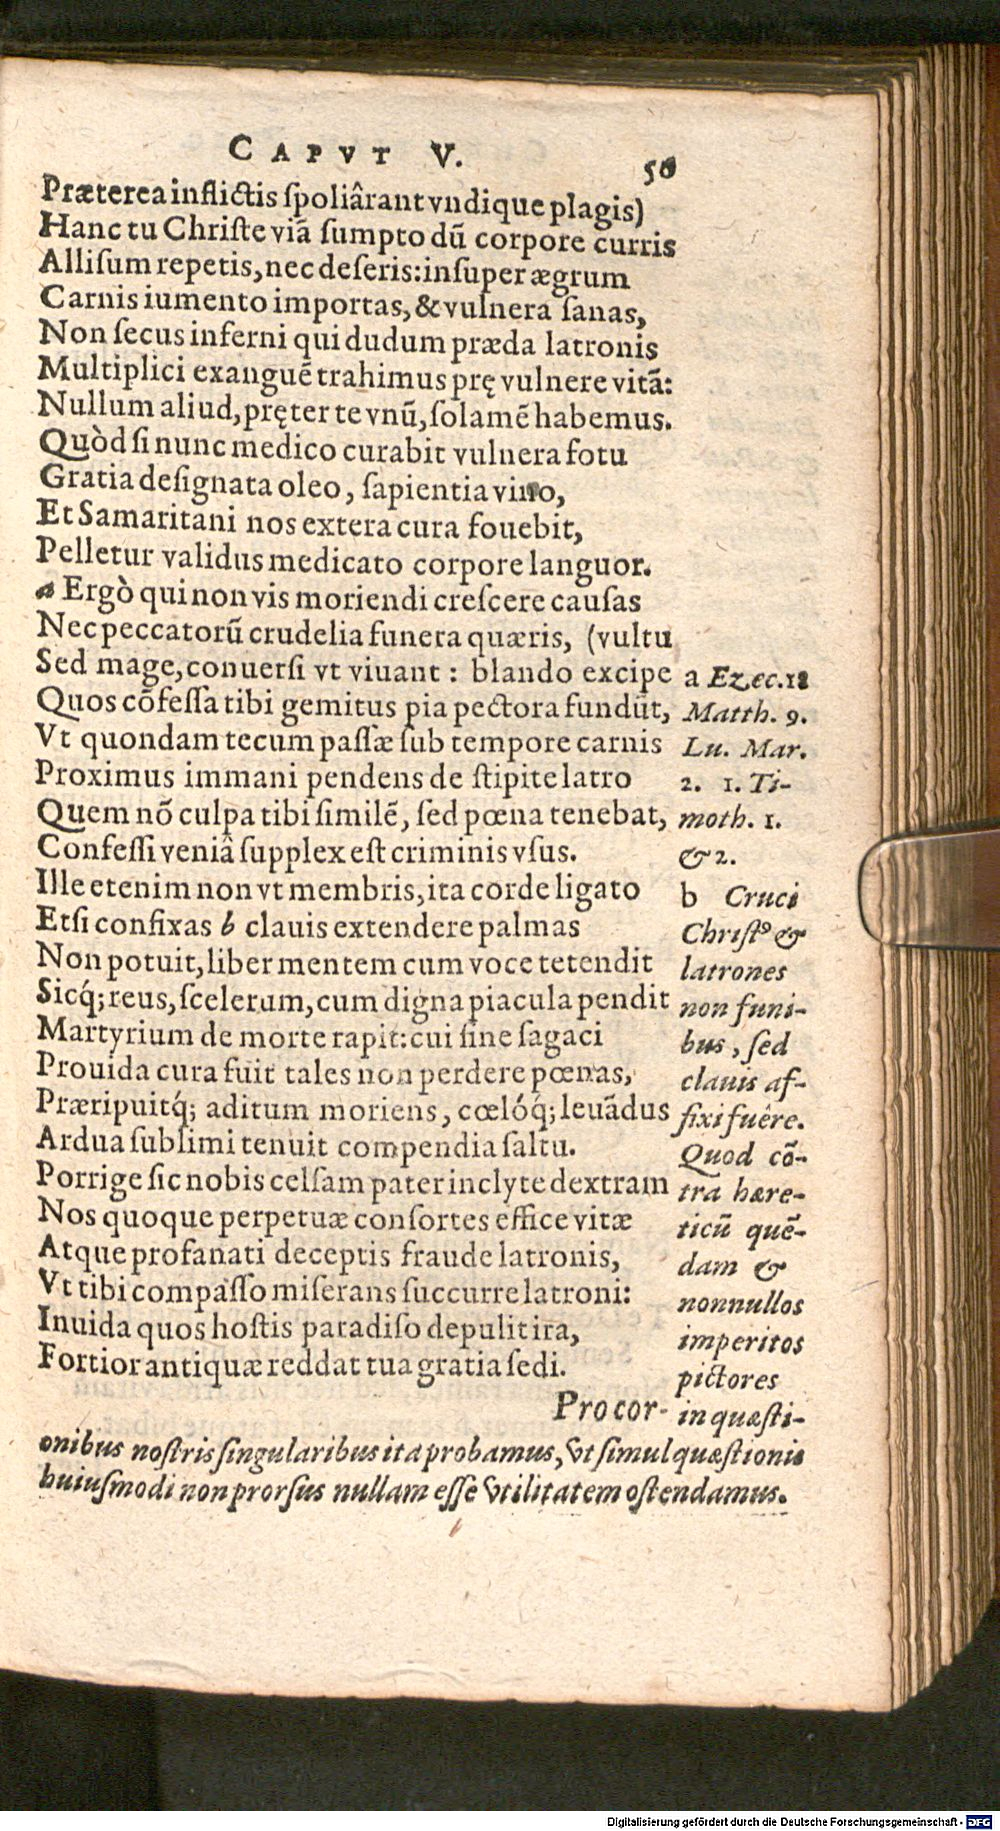 CAPVT V.
50
Præterea inflictis ſpoliârant vndique plagis)
Hanc tu Chriſte viã ſumpto dũ corpore curris
Alliſum repetis, nec deſeris: inſuper ægrum
Carnis iumento importas, & vulnera ſanas,
Non ſecus inferni qui dudum præda latronis
Multiplici exanguẽ trahimus prę vulnere vitã:
Nullum aliud, pręter te vnũ, ſolamẽ habemus.
Quòd ſi nunc medico curabit vulnera fotu
Gratia deſignata oleo, ſapientia vino,
Et Samaritani nos extera cura fouebit,
Pelletur validus medicato corpore languor.
a Ergò qui non vis moriendi creſcere cauſas
Nec peccatorũ crudelia funera quæris, (vultu
Sed mage, conuerſi vt viuant : blando excipe
Quos cõfeſſa tibi gemitus pia pectora fundũt,
Vt quondam tecum paſſæ ſub tempore carnis
Proximus immani pendens de ſtipite latro
Quem nõ culpa tibi ſimilẽ, ſed pœna tenebat,
Confeſſi veniâ ſupplex eſt criminis vſus.
Ille etenim non vt membris, ita corde ligato
Etſi confixas b clauis extendere palmas
Non potuit, liber mentem cum voce tetendit
Sicq́; reus, ſcelerum, cum digna piacula pendit
Martyrium de morte rapit: cui ſine ſagaci
Prouida cura fuit tales non perdere pœnas,
Præripuitq́; aditum moriens, cœlóq́; leuãdus
Ardua ſublimi tenuit compendia ſaltu.
Porrige ſic nobis celſam pater inclyte dextram
Nos quoque perpetuæ conſortes effice vitæ
Atque profanati deceptis fraude latronis,
Vt tibi compaſſo miſerans ſuccurre latroni:
Inuida quos hoſtis paradiſo depulit ira,
Fortior antiquæ reddat tua gratia ſedi.
Pro cor-
a Ezec.18
Matth. 9.
Lu. Mar.
2. 1. Ti-
moth. 1.
& 2.
b Cruci
Chriſtꝰ &
latrones
non funi-
bus, ſed
clauis af-
fixi fuêre.
Quod cõ-
tra hære-
ticũ quẽ-
dam &
nonnullos
imperitos
pictores
in quæſti-
onibus noſtris ſingularibus ita probamus, vt ſimul quæſtionis
huiuſmodi non prorſus nullam eſſe vtilitatem oſtendamus.
Digitalisierung gefördert durch die Deutsche Forschungsgemeinschaft - DFG